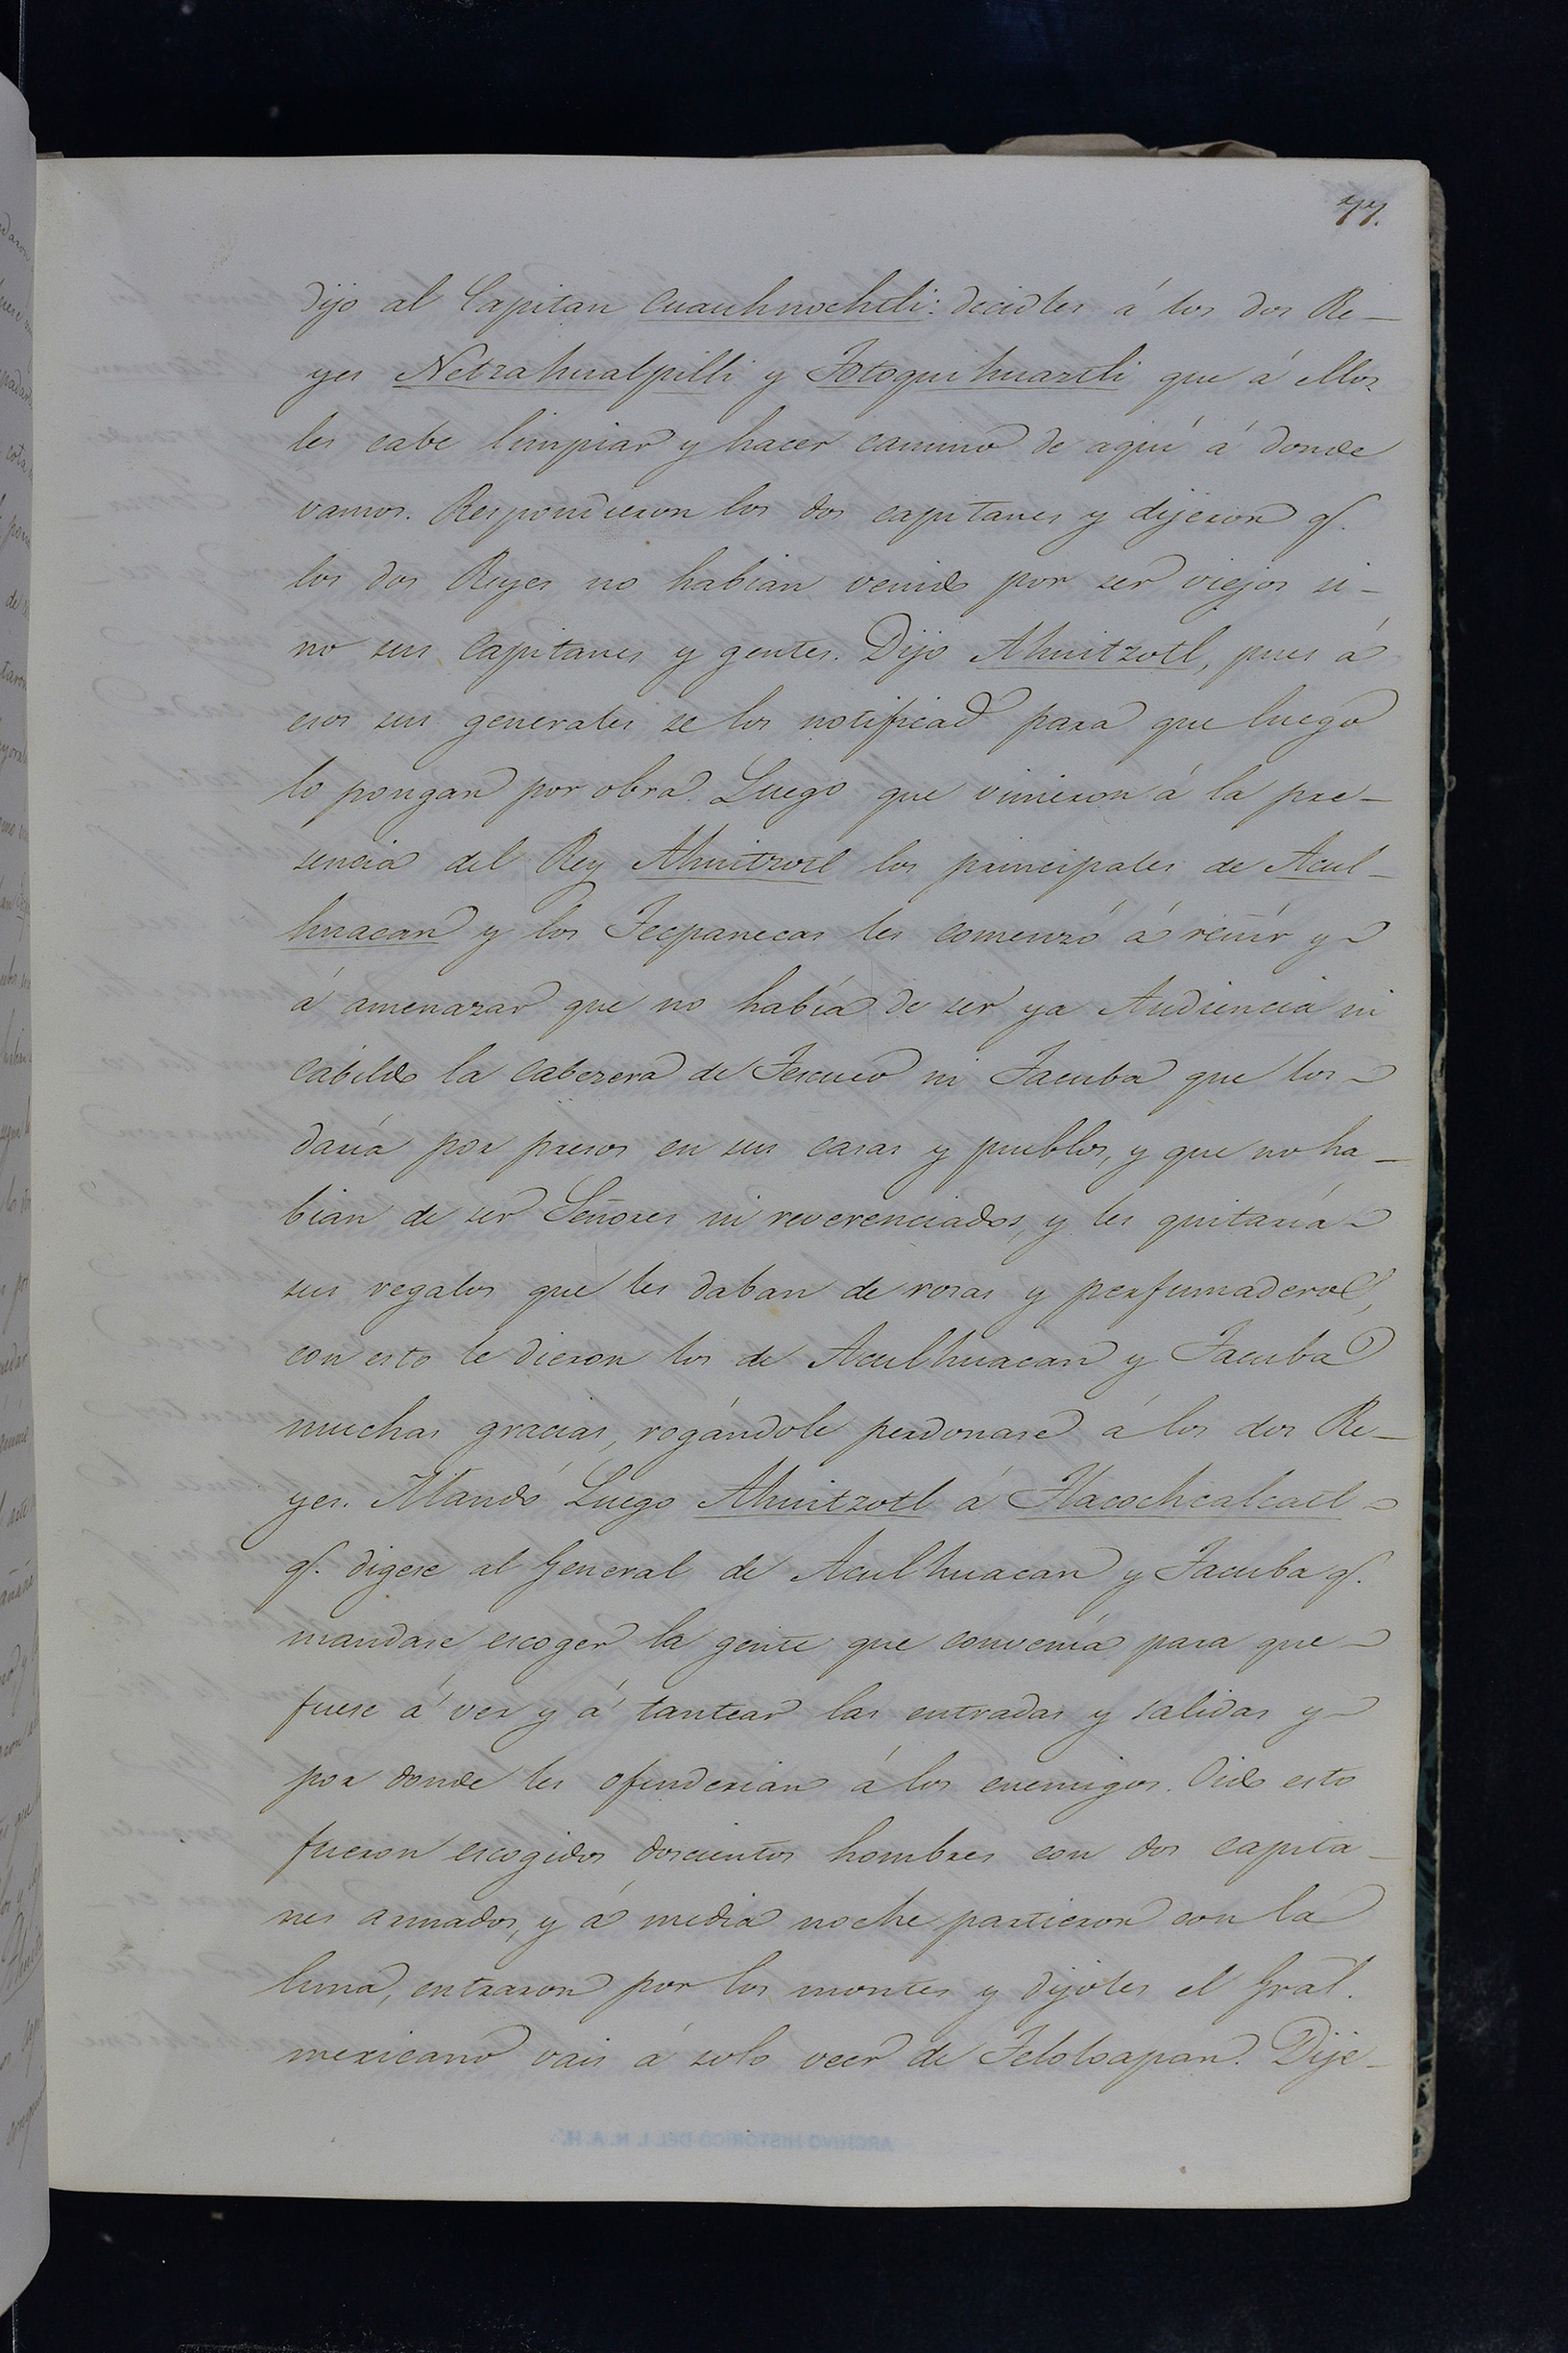 77.
dijo al Capitan Cuauhnochtli: decidles á los dos Re-
yes Netzahualpilli y Totoquihuaztli que á ellos
les cabe limpiar y hacer camino de aquí á donde
vamos. Respondieron los dos capitanes y dijeron q.
los dos Reyes no habian venido por ser viejos si-
no sus Capitanes y gentes. Dijo Ahuitzotl, pues á
esos sus generales se los notificad para que luego
lo pongan por obra. Luego que vinieron á la pre-
sencia del Rey Ahuitzotl los principales de Acul-
huacan y los Tecpanecas les comenzó á reñír y
á amenazar que no había de ser ya Audiencia ni
Cabildo la Cabezera de Tescuco ni Tacuba que los
daría por presos en sus casas y pueblos, y que no ha-
bian de ser Señores ni reverenciados, y les quitaría
sus regalos que les daban de rosas y perfumaderos,
con esto le dieron los de Aculhuacan y Tacuba
muchas gracias, rogándole perdonase á los dos Re-
yes. Mandó Luego Ahuitzotl á Tlacochcalcatl
q. digese al General de Aculhuacan y Tacuba q.
mandase escoger la gente que convenía para que
fuese á ver y á tantear las entradas y salidas y
por donde les ofenderian á los enemigos. Oido esto
fueron escogidos doscientos hombres con dos capita-
nes armados, y á media noche partieron con la
luna, entraron por los montes y dijoles el Gral.
mexicano vais á solo veer de Teloloapan. Dije-
ARCHIVO HISTORICO DEL I. N. A. H.